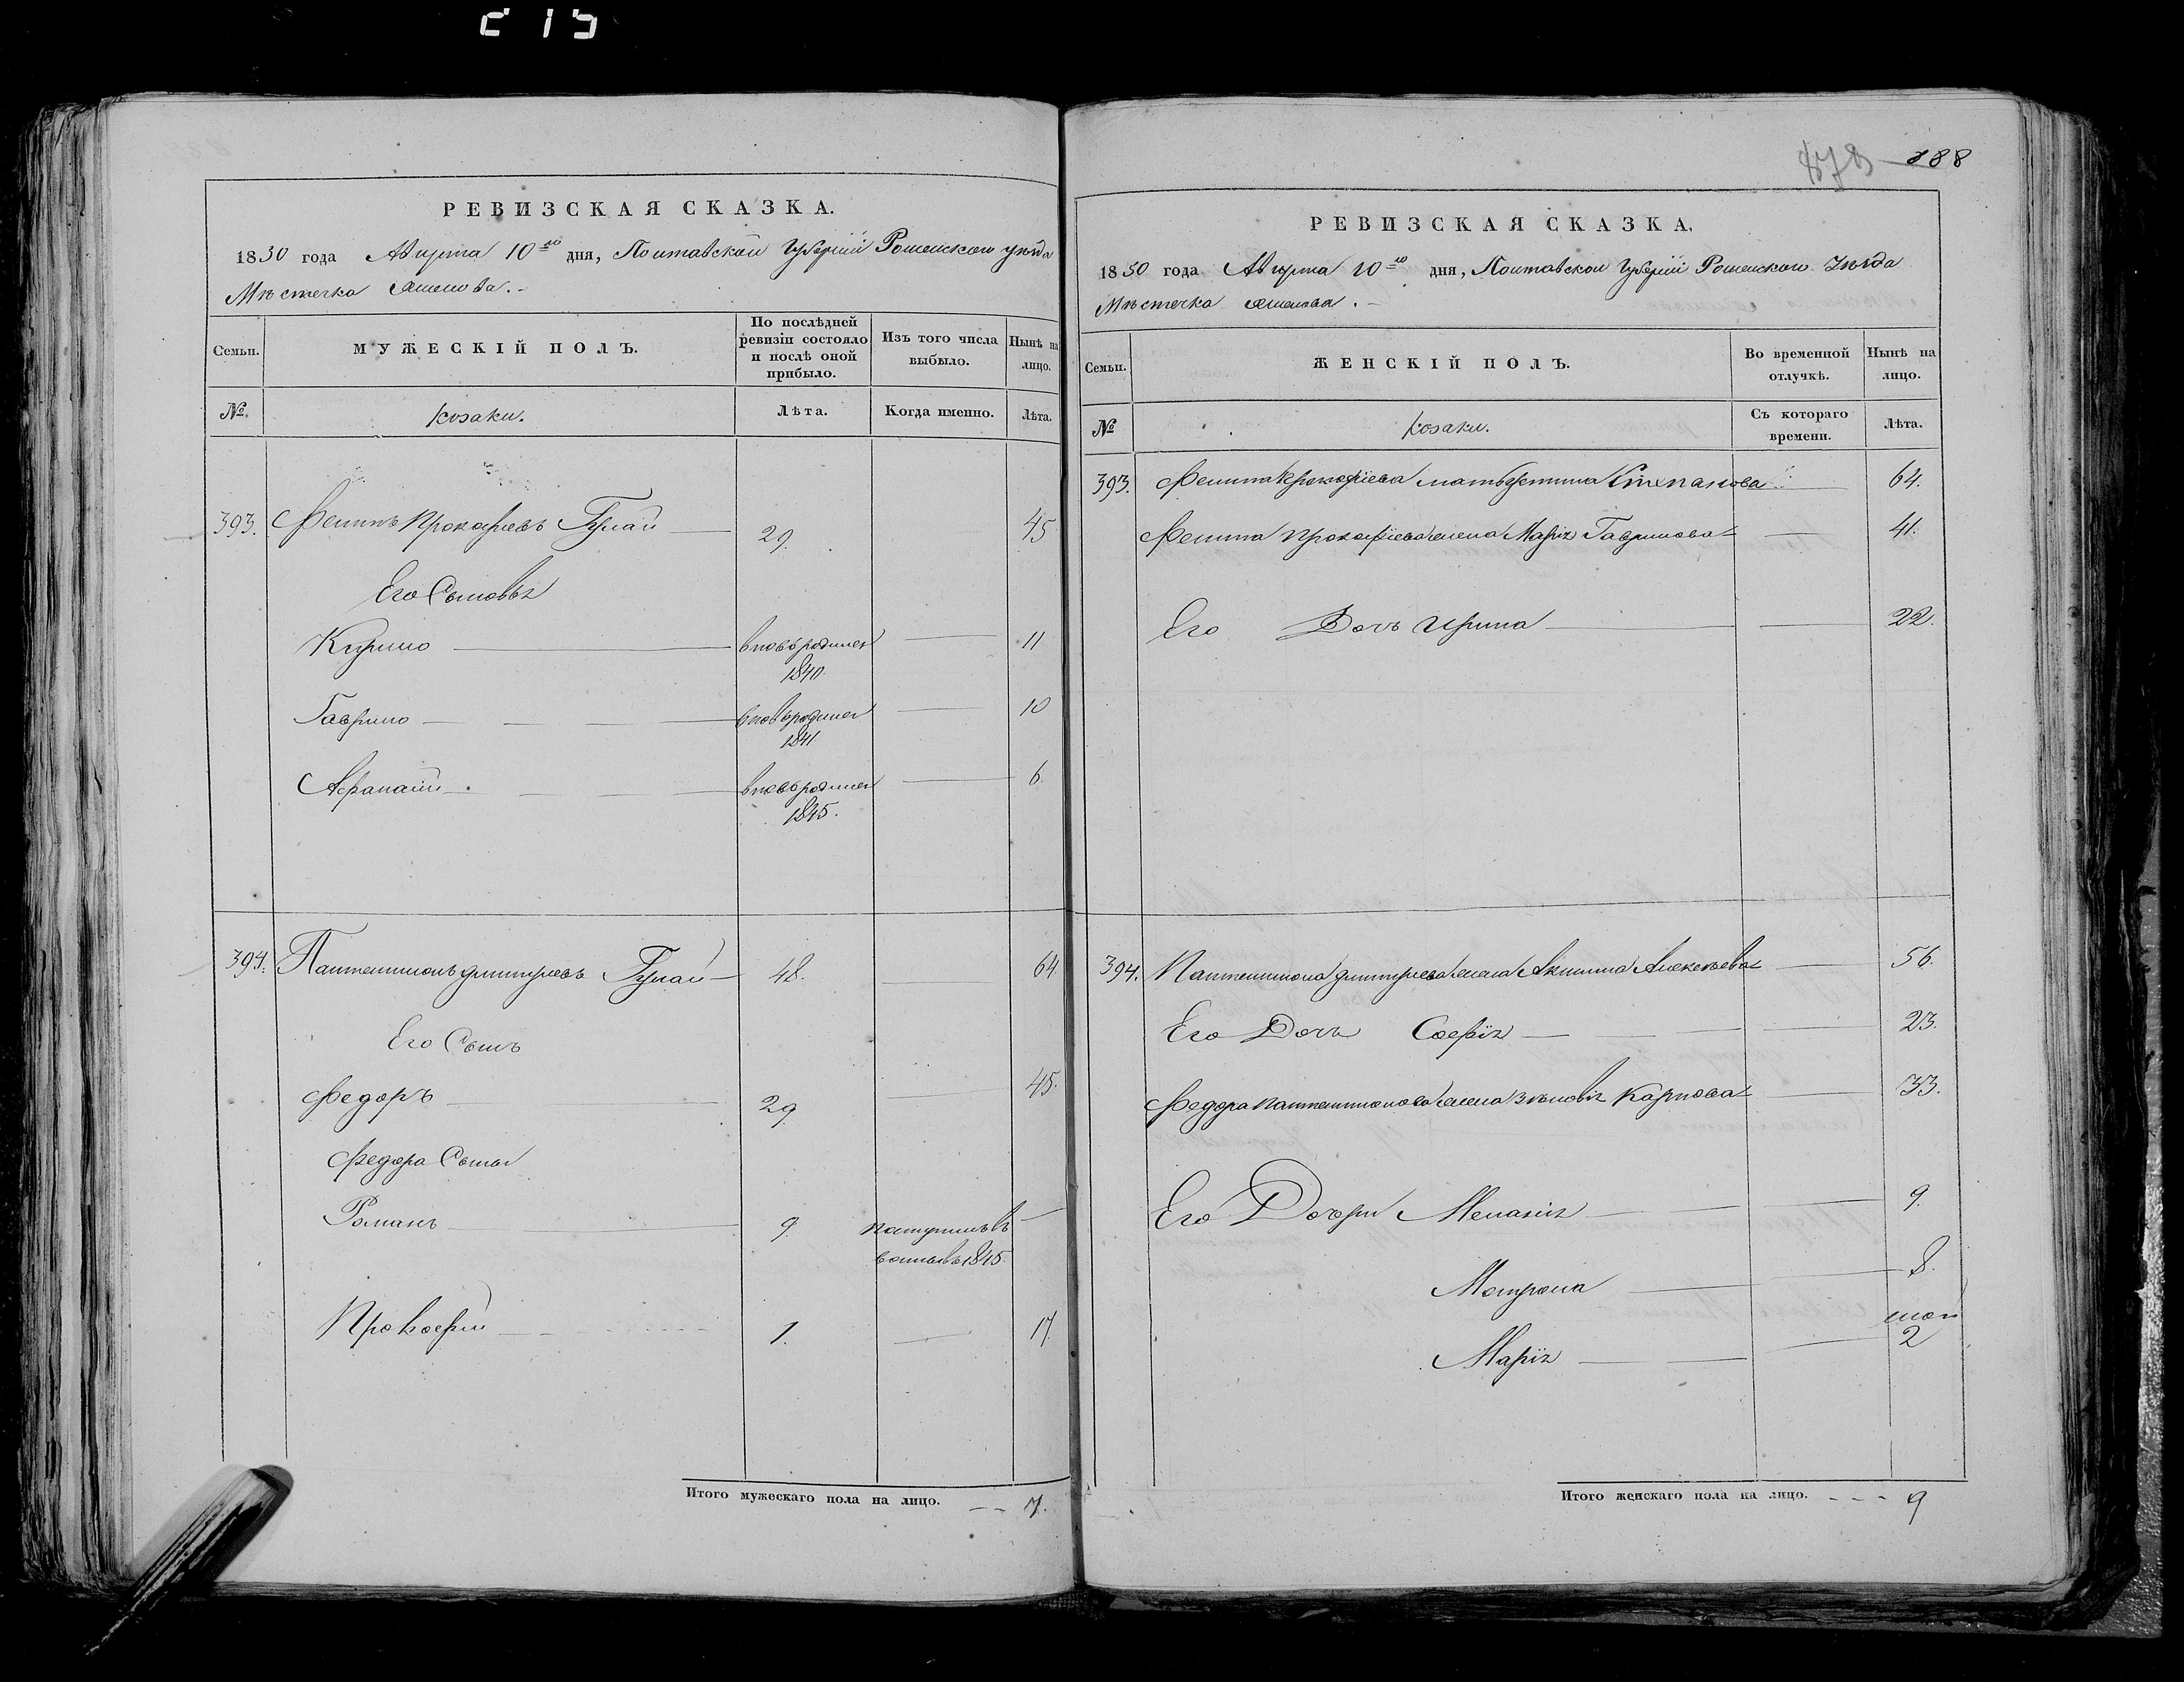 213
РЕВИЗСКАЯ СКАЗКА.
1850 года Августа 10го дня, Полтавской Губернiи Роменского уѣзда
Мѣстечка
Семьи.
МУЖЕСКIЙ ПОЛЪ.
По послѣдней ревизiи состояло и послѣ оной прибыло.
Изъ того числа выбыло.
Нынѣ на лицо.
№.
козаки.
Лѣта.
Когда именно.
Лѣта.
393. Филипъ Прокофiевъ Гулай 29. 45
Его Сыновья
Кирило вновьродился 1840 11
Гаврило вновьродился 1841 10
Афанасiй вновьродился 1845. 6.
394. Пантелимонъ Дмитрiевъ Гулай 48. 64
Его Сынъ
Федоръ 29 45.
Федора Сыны
Романъ 9. поступилъ въ 1845.
Прокофiй 1. 17.
Итого мужескаго пола на лицо. 7.
188
РЕВИЗСКАЯ СКАЗКА.
1850 года Августа 10го дня, Полтавской Губернiи Роменского Уѣзда
Мѣстечка
Семьи.
ЖЕНСКIЙ ПОЛЪ.
Во временной отлучкѣ.
Нынѣ на лицо.
№
козаки.
Съ котораго времени.
Лѣта.
393. Филипа Прокофiева мать Степанова 64.
Филипа Прокофiева жена Марiя Гаврилова 41.
Его Дочь Ирина 22.
394. Пантелимона Дмитрiева жена Акилина Алексѣева 56.
Его Дочь Софiя 23.
Федора Пантелимонова жена Зѣновiя Карпова 33.
Его Дочери Меланiя 9.
Мотрона 8.
Марiя 2
Итого женскаго пола на лицо. 9